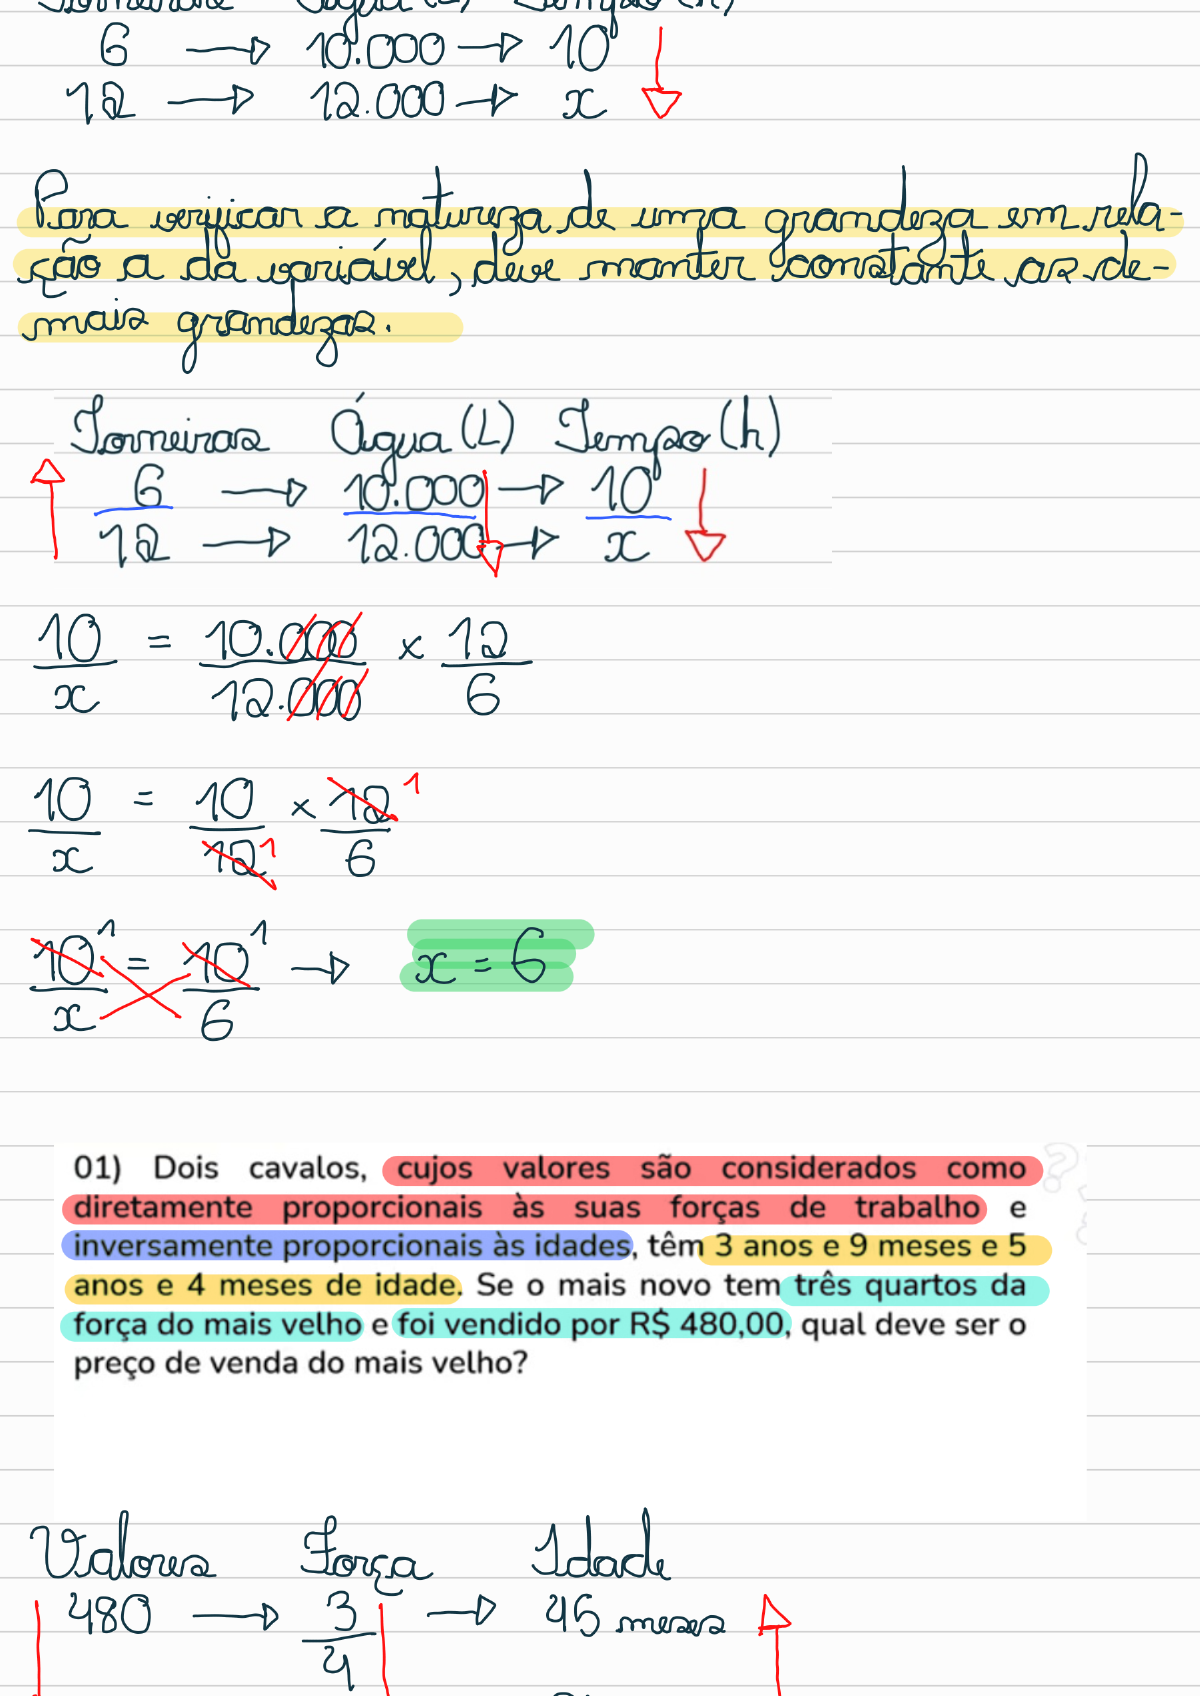 Torneiras Água (L) Tempo (h)
6 → 10.000 → 10
12 → 12.000 → x
Para verificar a natureza de uma grandeza em rela-
ção a da variável, deve manter constante as de-
mais grandezas.
Torneiras Água (L) Tempo (h)
6 → 10.000 → 10
12 → 12.000 → x
10/x = 10.000/12.000 × 12/6
10/x = 10/12 1 × 12 1/6
10 1/x = 10 1/6 → x = 6
01) Dois cavalos, cujos valores são considerados como
diretamente proporcionais às suas forças de trabalho e
inversamente proporcionais às idades, têm 3 anos e 9 meses e 5
anos e 4 meses de idade. Se o mais novo tem três quartos da
força do mais velho e foi vendido por R$ 480,00, qual deve ser o
preço de venda do mais velho?
Valores Força Idade
480 → 3/4 → 45 meses